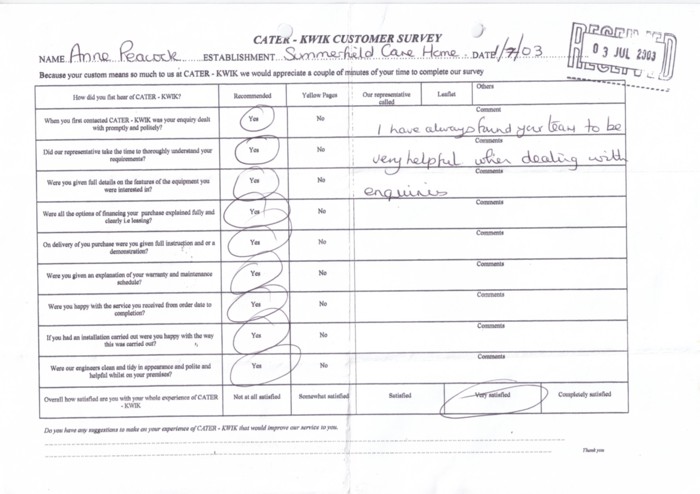 CATER - KWIK CUSTOMER SURVEY
NAME Anne Peacock ESTABLISHMENT Summerfield Care Home DATE 1/7/03
RECEIVED 03 JUL 2003
Because your custom means so much to us at CATER - KWIK we would appreciate a couple of minutes of your time to complete our survey
How did you first hear of CATER - KWIK? Recommended Yellow Pages Our representative called Leaflet Others
When you first contacted CATER - KWIK was your enquiry dealt with promptly and politely? Yes No Comment
I have always found your team to be
Did our representative take the time to thoroughly understand your requirements? Yes No Comments
very helpful when dealing with
Were you given full details on the features of the equipment you were interested in? Yes No Comments
enquiries
Were all the options of financing your purchase explained fully and clearly i.e leasing? Yes No Comments
On delivery of you purchase were you given full instruction and or a demonstration? Yes No Comments
Were you given an explanation of your warranty and maintenance schedule? Yes No Comments
Were you happy with the service you received from order date to completion? Yes No Comments
If you had an installation carried out were you happy with the way this was carried out? Yes No Comments
Were our engineers clean and tidy in appearance and polite and helpful whilst on your premises? Yes No Comments
Overall how satisfied are you with your whole experience of CATER - KWIK Not at all satisfied Somewhat satisfied Satisfied Very satisfied Completely satisfied
Do you have any suggestions to make on your experience of CATER - KWIK that would improve our service to you.
Thank you